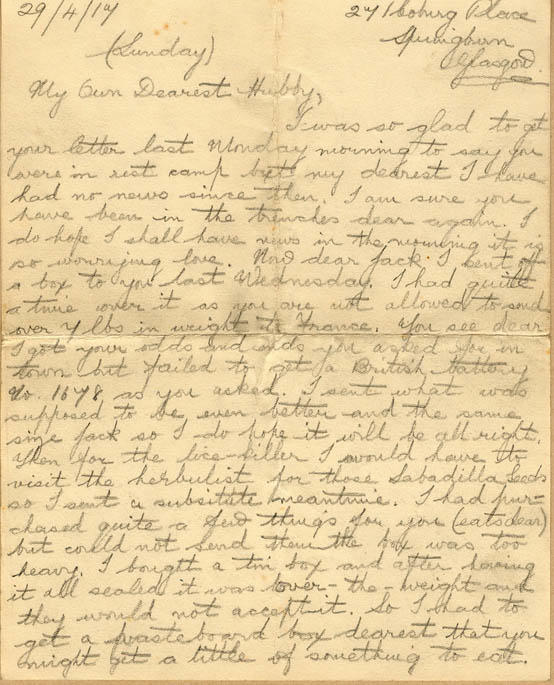 29/4/17 271 Coburg Place
(Sunday) Springburn
Glasgow.
My Own Dearest Hubby,
I was so glad to get
your letter last Monday morning to say you
were in rest camp but my dearest I have
had no news since then. I am sure you
have been in the trenches dear again. I
do hope I shall have news in the morning it is
so worrying love. Now dear Jack I sent off
a box to you last Wednesday. I had quite
a time over it as you are not allowed to send
over 7 lbs in weight to France. You see dear
I got your odds and ends you asked for in
town but failed to get a British battery
No. 1678 as you asked. I sent what was
supposed to be even better and the same
size Jack so I do hope it will be all right.
Then for the lice-killer I would have to
visit the herbulist for those Sabadilla Seeds
so I sent a subsitute meantime. I had pur-
chased quite a few things for you (eats dear)
but could not send them the box was too
heavy. I bought a tin box and after having
it all sealed it was over-the-weight and
they would not accept it. So I had to
get a wasteboard box dearest that you
might get a little of something to eat.